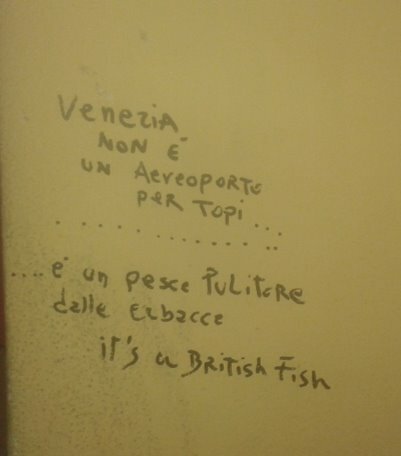 VENEZIA
NON È
UN AEREOPORTO
PER TOPI...
. . . . . . . . . . . . ..
....è un pesce PULITORE
dalle ERBACCE
it's a BRitish Fish